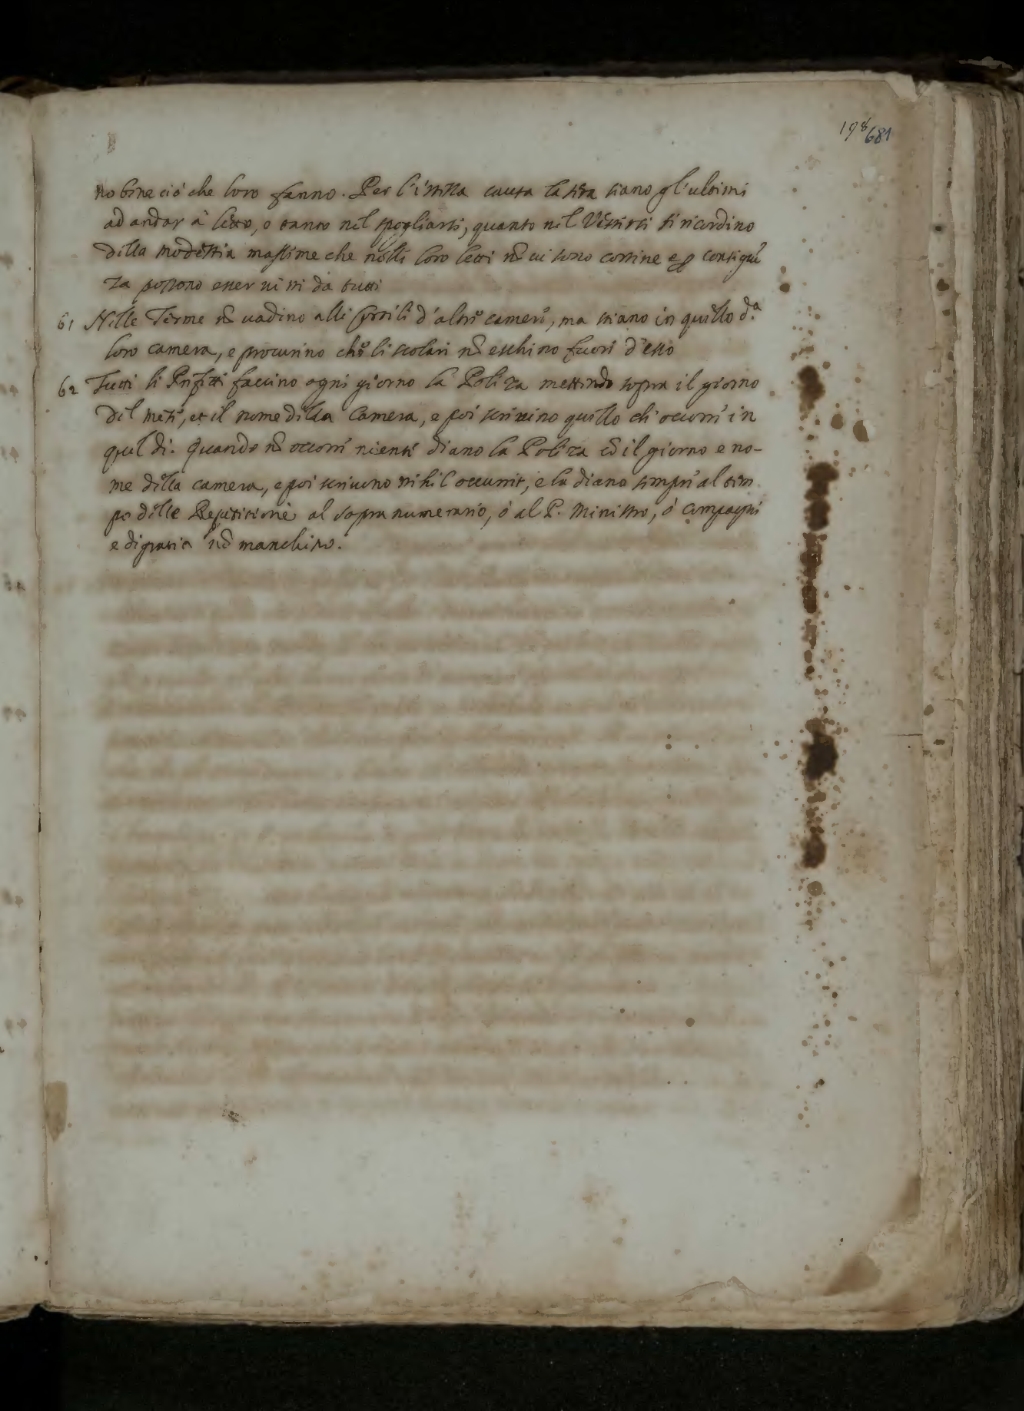 198 681
no bene ciò che loro fanno. Per l'istessa causa la sera siano gl'ultimi
ad andar à letto, e tanto nel spogliarsi, quanto nel Vestirsi si ricordino
della modestia massime che nelli loro letti nõ vi sono cortine e p consigue
za possono esser visti da tutti
61 Nelle Terme nõ vadino alli d'altre camere, ma siano in quello dª
loro camera, e procurino che li scolari nõ eschino fuori d'esso
62 Tutti li Prefetti faccino ogni giorno la Poliza mettendo sopra il giorno
del mese, et il nome della Camera, e poi scrivino quello ch'occorre in
quel di. Quando nõ occorre niente diano la Poliza cõ il giorno e no-
me della camera, e poi scriveno nihil occurrit, e la diano sempre al tem
po delle Repetitione al sopranumerario, ò al P. Ministro, ò Compagni
e di gratia nõ manchino.